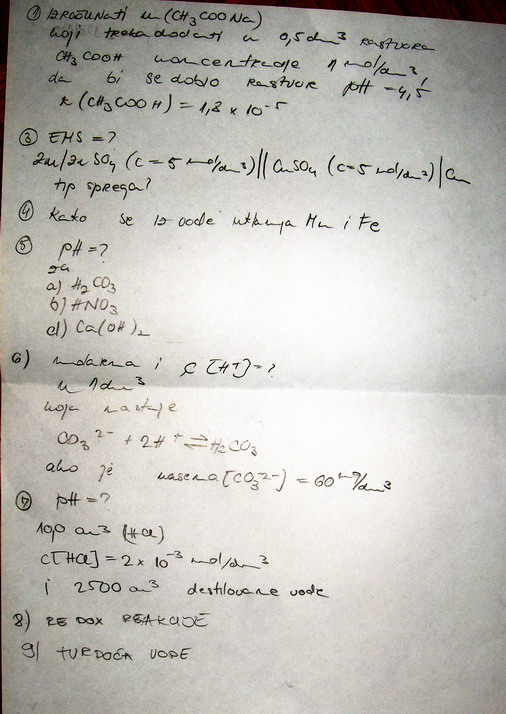 ① IZRAČUNATI m(CH3COONa)
koji treba dodati u 0,5 dm³ rastvora
CH3COOH koncentracije 1 mol/dm³,
da bi se dobio rastvor pH = 4,5
K(CH3COOH) = 1,8 × 10⁻⁵
③ EMS = ?
Zn/ZnSO4 (c = 5 mol/dm³) || CuSO4 (c = 5 mol/dm³) | Cu
tip sprega?
④ Kako se iz vode uklanja Mn i Fe
⑤ pH = ?
za
a) H2CO3
b) HNO3
d) Ca(OH)2
6) molarna i [H⁺] = ?
u 1 dm³
koja nastaje
CO3²⁻ + 2H⁺ ⇌ H2CO3
ako je masena [CO3²⁻] = 60 mg/dm³
⑦ pH = ?
100 cm³ (HCl)
c[HCl] = 2 × 10⁻³ mol/dm³
i 2500 cm³ destilovane vode
8) REDOX REAKCIJE
9) TVRDOĆA VODE